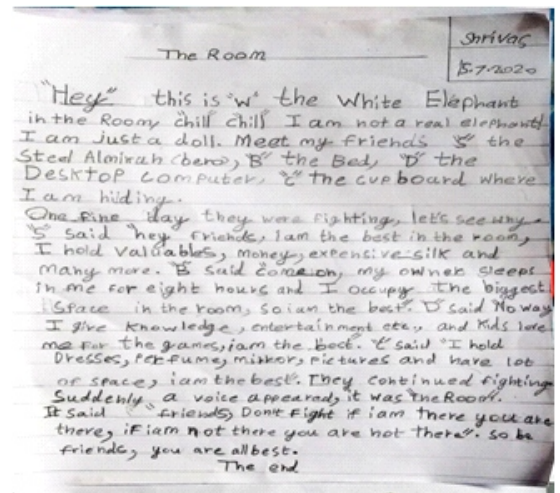 Shrivas
15.7.2020
The Room
"Hey" this is "W" the White Elephant
in the Room, chill chill I am not a real elephant!
I am just a doll. Meet my friends "S" the
Steel Almirah (bero), "B" the Bed, "D" the
Desktop computer, "C" the cupboard where
I am hiding.
One fine day they were fighting, let's see why.
"S" said "hey friends, I am the best in the room,
I hold valuables, money, expensive silk and
many more. "B" said come on, my owner sleeps
in me for eight hours and I occupy the biggest
space in the room, so i am the best". "D" said No way
I give knowledge, entertainment etc., and kids love
me for the games, i am the best. "C" said "I hold
Dresses, perfume, mirror, pictures and have lot
of space, i am the best". They continued fighting
Suddenly a voice appeared, it was the Room.
It said "friends, Don't fight if i am there you are
there, if i am not there you are not there". So be
friends, you are all best.
The end